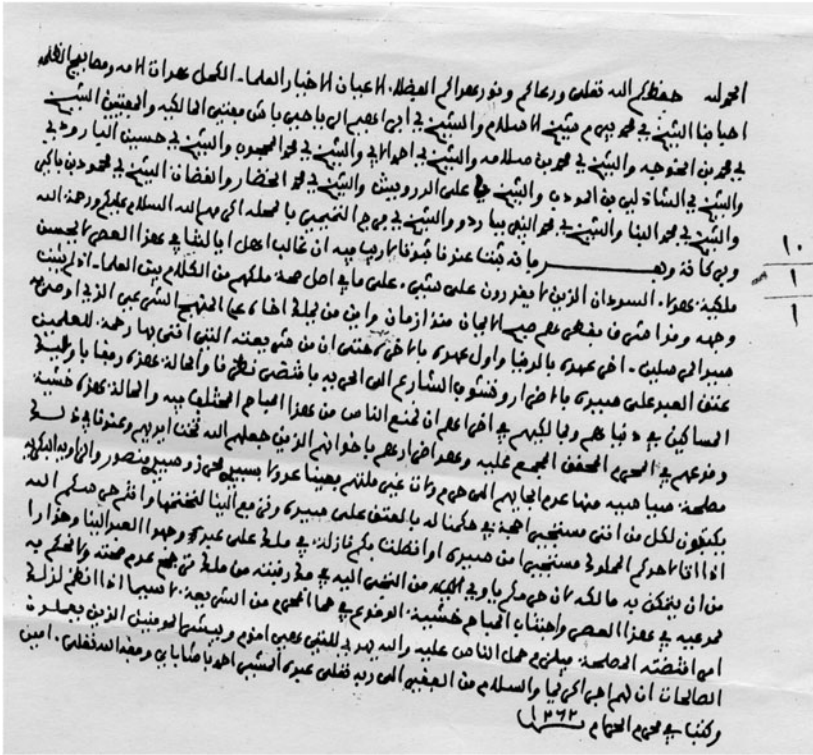 الحمد لله حفظكم الله تعلى ورعاكم ونور هداكم الفضلا. الاعيان الاخيار العلما. الكمل هداة الامه ومصابيح الظلمه
احبابنا الشيخ سي محمد بيرم شيخ الاسلام والشيخ سي ابراهيم الرياحي باش مفتي المالكيه والمفتيين الشيخ
سي محمد بن الخوجه والشيخ سي محمد بن سلامه والشيخ سي احمد الابي والشيخ سي محمد المحجوب والشيخ سي حسين البارودي
والشيخ سي الشاذلي بن المودب والشيخ سي علي الدرويش والشيخ سي محمد الخضار والقضاة الشيخ سي محمود بن باكير
والشيخ سي محمد البنا والشيخ سي محمد النيفر بباردو والشيخ سي فرج التميمي بالمحله اكرمهم الله السلام عليكم ورحمة الله
وبركاته وبعد فانه ثبت عندنا ثبوتا لا ريب فيه ان غالب اهل ايالتنا في هذا العصر لا يحسن
ملكية هولا. السودان الذين لا يقدرون على شي. على ما في اصل صحة ملكهم من الكلام بين العلما. اذ لم يثبت
وجهه وقد اشرق بقطرهم صبح الايمان منذ ازمان واين من يملك اخاه على المنهج الشرعي الذي اوصى به
سيد المرسلين. اخر عهده بالدنيا واول عهده بالاخرة حتى ان من شريعته التي اتى بها رحمة للعلمين
عتق العبد على سيده بالاضرار وتشوف الشارع الى الحريه فاقتضى نظرنا والحالة هذه رفقا باوليك
المساكين في دنياهم وبمالكيهم في اخراهم ان نمنع الناس من هذا المباح المختلف فيه والحالة هذه خشية
وقوعهم في المحرم المحقق المجمع عليه وهو اضرارهم باخوانهم الذين جعلهم الله تحت ايديهم وعندنا في ذلك
مصلحة سياسيه منها عدم الجايهم الى حرم ولاة غير ملتهم فعينا عدولا بسيدي محرز وسيدي منصور والزاويه البكريه
يكتبون لكل من اتى مستجيرا حجة في حكمنا له بالعتق على سيده وترفع الينا لنختمها وانتم حرسكم الله
اذا اتى لاحدكم المملوك مستجيرا من سيده او اتصلت بكم نازلة في ملك على عبد وجهوا العبد الينا وحذارا
من ان يتمكن به مالكه لان حرمكم ياوي من التجى اليه في فك رقبته من ملك ترجح عدم صحته ولا نحكم به
لمدعيه في هذا العصر واجتناب المباح خشية الوقوع في المحرم من الشريعة لاسيما اذا انضم لذلك
امر اقتضته المصلحة فيلزم حمل الناس عليه والله يهدي للتي هي اقوم ويبشر المومنين الذين يعملون
الصالحات ان لهم اجرا كبيرا والسلام من الفقير الى ربه تعلى عبده المشير احمد باشا باي وفقه الله تعلى. امين
وكتب في محرم الحرام ١٢٦٢
١٠
١
١